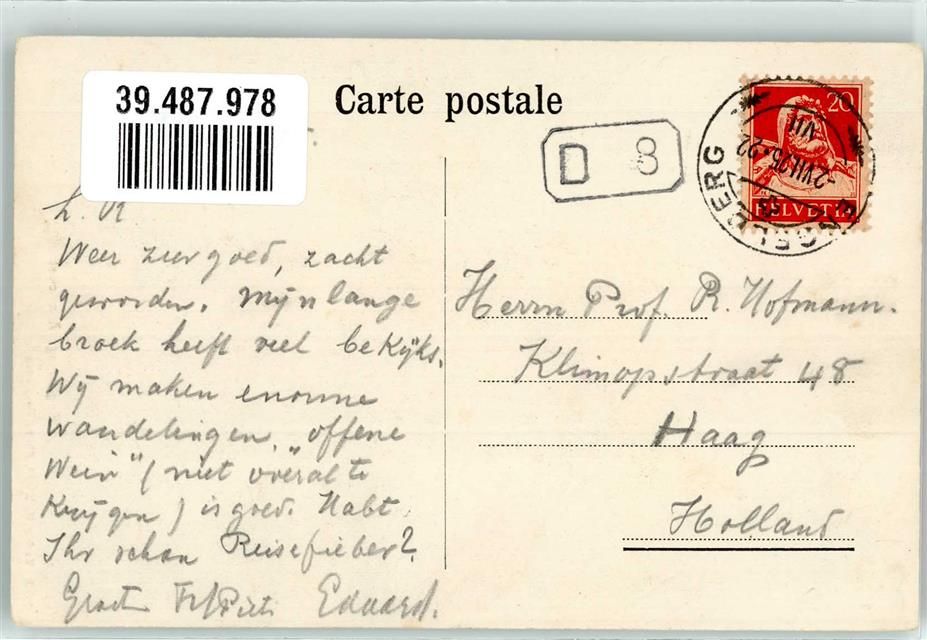 39.487.978
Carte postale
D 8
20
HELVETIA
ENGELBERG
-2.VII.26-22
VII
L. R
Weer zeer goed, zacht
geworden. Mijn lange
broek heeft veel bekijks.
Wij maken enorme
wandelingen, "offene
Wein" (niet overal te
krijgen) is goed. Habt
Ihr schon Reisefieber?
Groeten Eduard.
Herrn Prof. R. Hofmann.
Klimopstraat 48
Haag
Holland